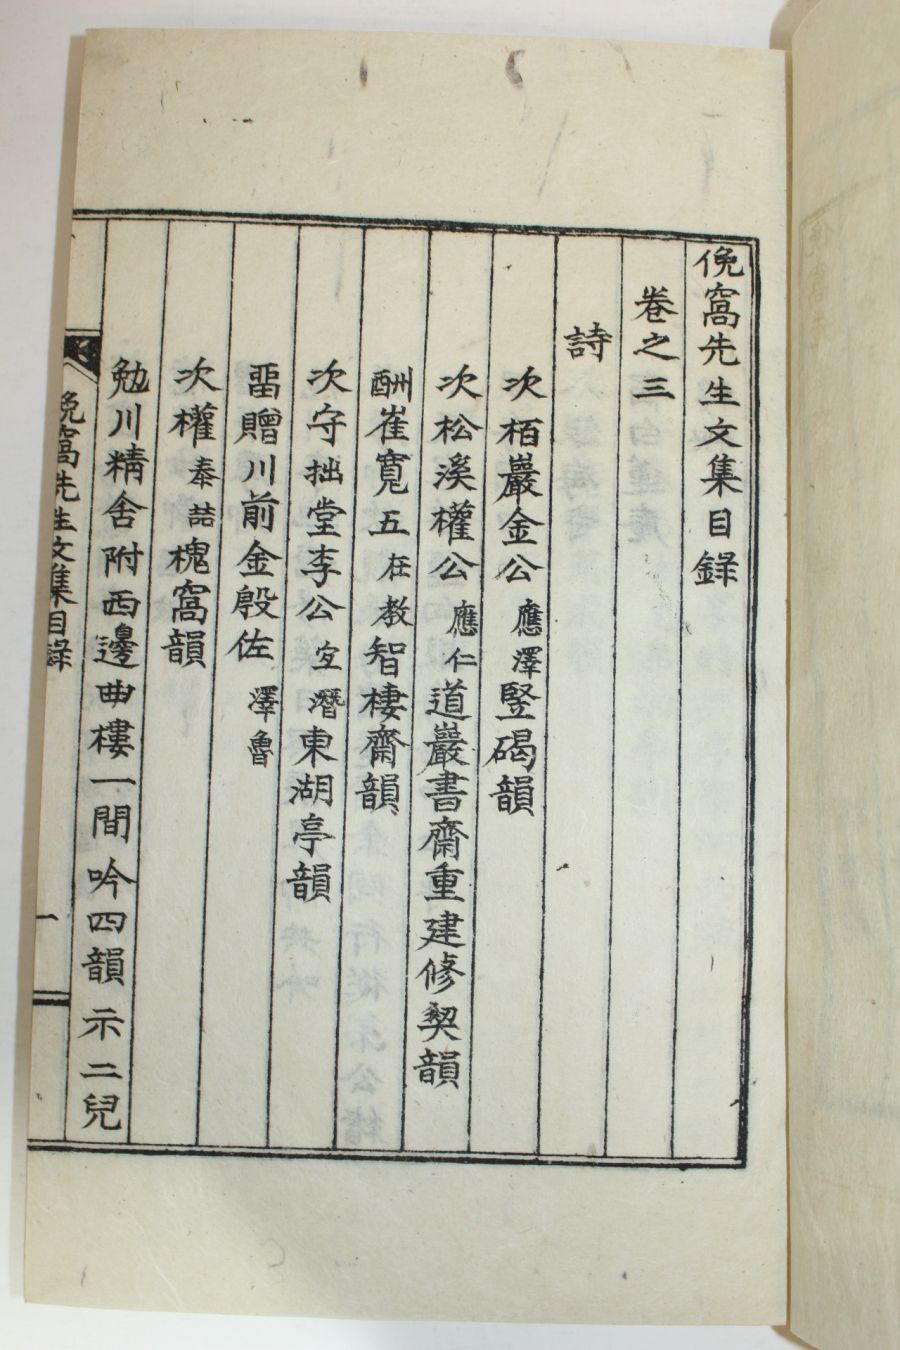 俛窩先生文集目錄
卷之三
詩
次栢巖金公應澤竪碣韻
次松溪權公應仁道巖書齋重建修契韻
酬崔寬五在教智棲齋韻
次守拙堂李公宜潛東湖亭韻
畱贈川前金殷佐澤魯
次權奉喆槐窩韻
勉川精舍附西邊曲樓一間吟四韻示二兒
俛窩先生文集目錄
一